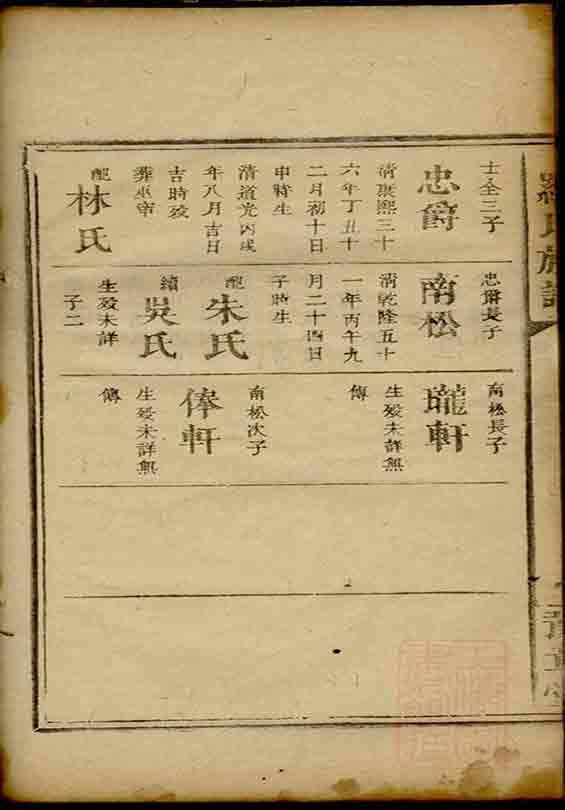 士全三子
忠爵
清康熙三十
六年丁丑十
二月初十日
申時生
清道光丙戌
年八月吉日
吉時歿
葬巫帝
配
林氏
忠爵長子
南松
清乾隆五十
一年丙午九
月二十四日
子時生
配
朱氏
續
吳氏
生歿未詳
子二
南松長子
瓏軒
生歿未詳無
傳
南松次子
俸軒
生歿未詳無
傳
氏族譜